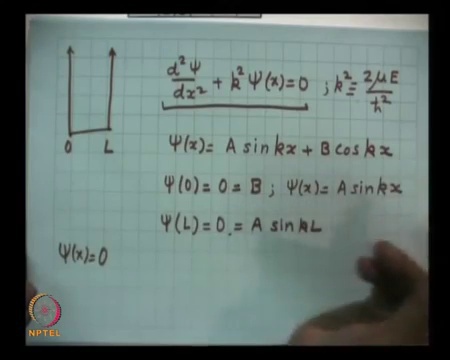 d²Ψ/dx² + k² Ψ(x) = 0 ; k² = 2μE/ħ²
0 L
Ψ(x) = A sin kx + B cos kx
Ψ(0) = 0 = B ; Ψ(x) = A sin kx
Ψ(L) = 0 . = A sin kL
Ψ(x) = 0
NPTEL